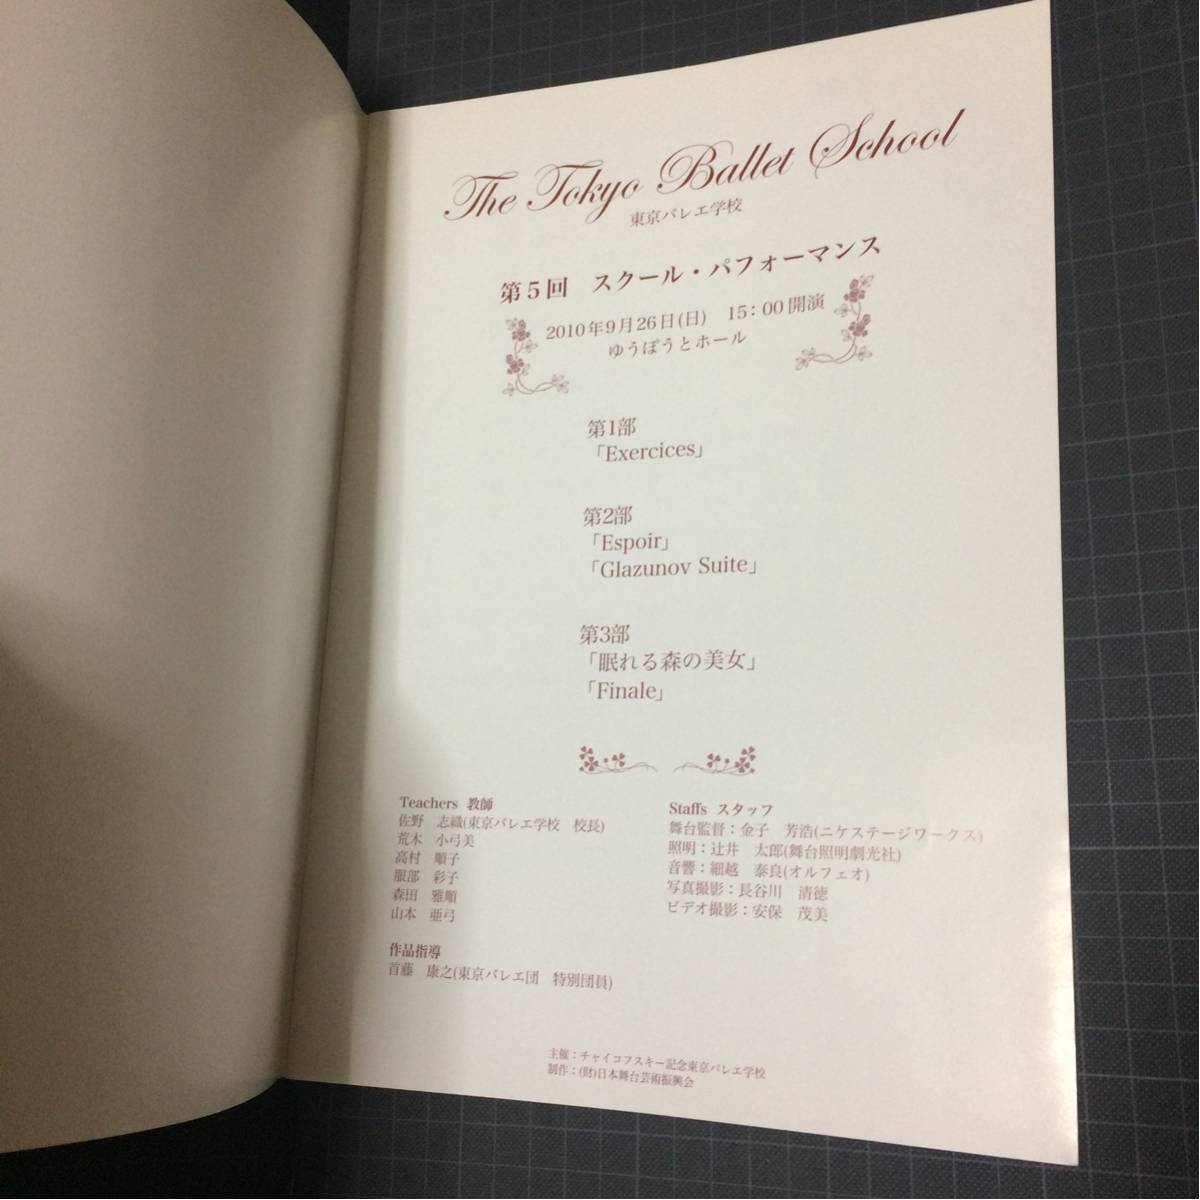 The Tokyo Ballet School
東京バレエ学校
第5回 スクール・パフォーマンス
2010年9月26日(日) 15:00開演
ゆうぽうとホール
第1部
「Exercices」
第2部
「Espoir」
「Glazunov Suite」
第3部
「眠れる森の美女」
「Finale」
Teachers 教師
佐野 志織(東京バレエ学校 校長)
荒木 小弓美
高村 順子
服部 彩子
森田 雅順
山本 亜弓
作品指導
首藤 康之(東京バレエ団 特別団員)
Staffs スタッフ
舞台監督:金子 芳浩(ニケステージワークス)
照明:辻井 太郎(舞台照明劇光社)
音響:細越 泰良(オルフェオ)
写真撮影:長谷川 清徳
ビデオ撮影:安保 茂美
主催:チャイコフスキー記念東京バレエ学校
制作:(財)日本舞台芸術振興会